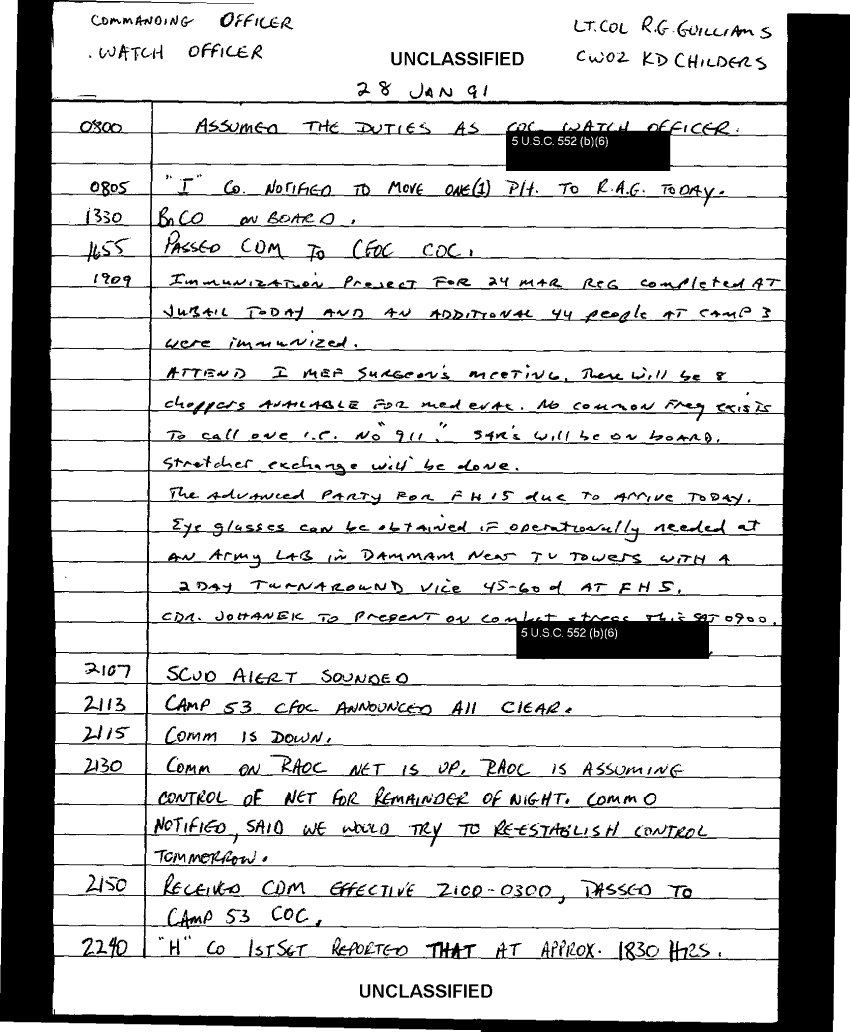 COMMANDING OFFICER LT.COL R.G. GUILLIAMS
. WATCH OFFICER UNCLASSIFIED CWO2 KD CHILDERS
28 JAN 91
0800 ASSUMED THE DUTIES AS COC WATCH OFFICER.
5 U.S.C. 552 (b)(6)
0805 "I" Co. NOTIFIED TO MOVE ONE(1) Plt. TO R.A.G. TODAY.
1330 BnCO ON BOARD.
1655 PASSED CDM TO CFOC COC.
1909 Immunization Project FOR 24 MAR REG completed AT
JUBAIL TODAY AND AN ADDITIONAL 44 people AT CAMP 3
were immunized.
ATTEND I MEF Surgeon's meeting. There will be 8
choppers AVAILABLE FOR medevac. No common Freq exists
To call one i.e. No "911". SAR's will be on board.
Stretcher exchange will be done.
The Advanced PARTY FOR FH 15 due to arrive TODAY.
Eye glasses can be obtained if operationally needed at
AN Army LAB in DAMMAM Near TV Towers with A
2 DAY TURNAROUND Vice 45-60 d AT FH 5.
CDR. JOHANEK TO PRESENT ON combat stress This SAT 0900.
5 U.S.C. 552 (b)(6)
2107 SCUD AlERT SOUNDED
2113 CAMP 53 CFOC ANNOUNCED All ClEAR.
2115 COMM IS DOWN.
2130 COMM ON RAOC NET IS UP. RAOC IS ASSUMING
CONTROL OF NET FOR REMAINDER OF NIGHT. COMM O
NOTIFIED, SAID WE WOULD TRY TO RE-ESTABLISH CONTROL
TOMMERROW.
2150 RECEIVED CDM EFFECTIVE 2100-0300, PASSED TO
CAMP 53 COC.
2240 "H" Co 1STSGT REPORTED THAT AT APPROX. 1830 HRS.
UNCLASSIFIED